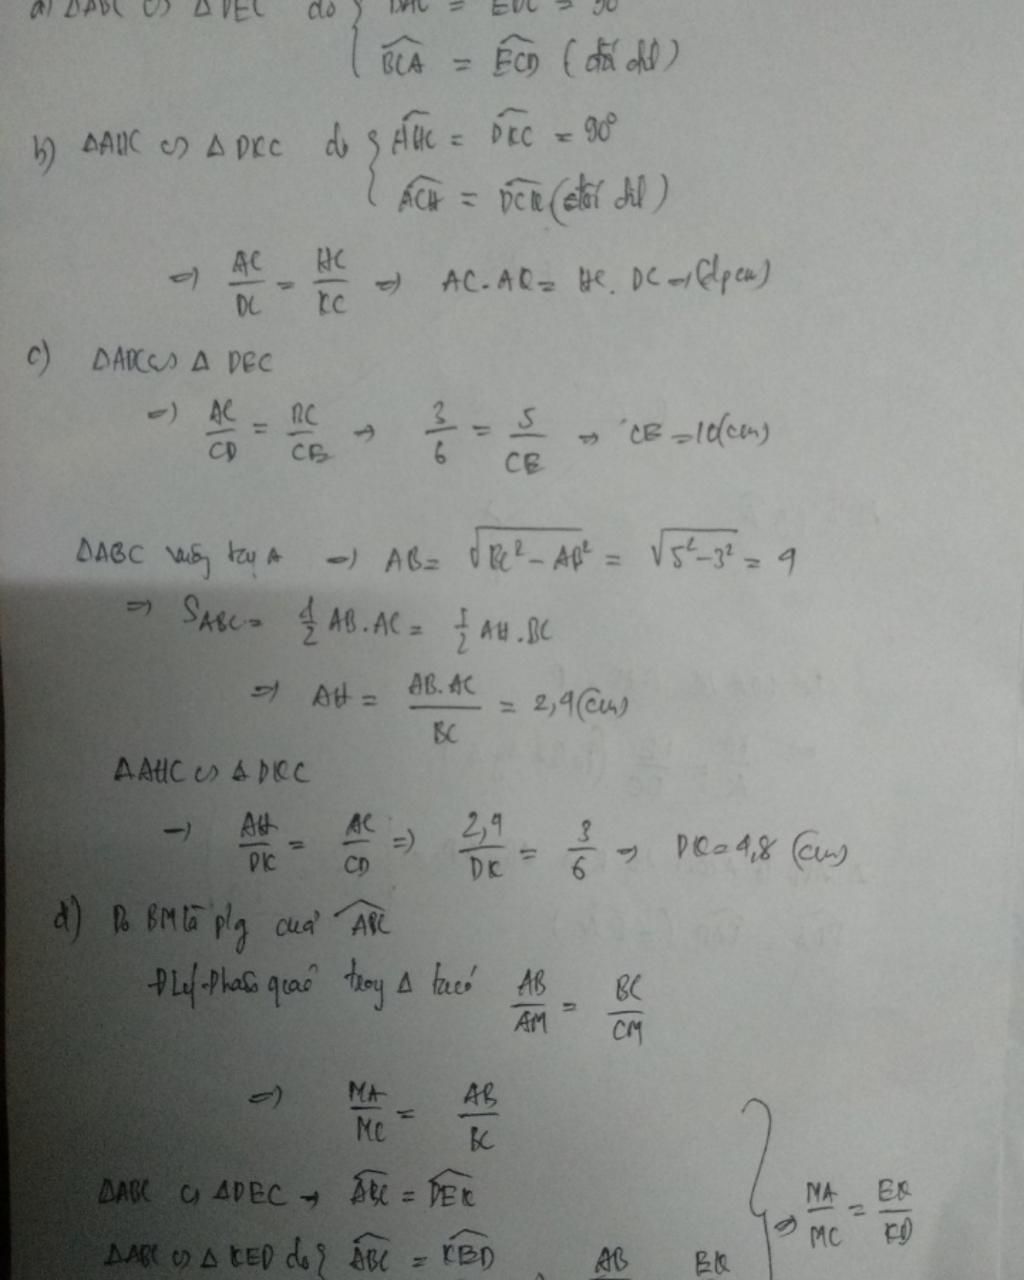 a) ΔABC ∽ ΔDEC do { BAC = EDC = 90
BCA = ECD (đối đỉnh)
b) ΔAHC ∽ ΔDKC do { AHC = DKC = 90°
ACH = DCK (đối đỉnh)
=> AC/DC = HC/KC => AC.AK = HC.DC → (đpcm)
c) ΔABC ∽ Δ DEC
=> AC/CD = BC/CE → 3/6 = 5/CE => CE = 10(cm)
ΔABC vuông tại A => AB = √BC² - AB² = √5²-3² = 4
=> SABC = 1/2 AB.AC = 1/2 AH.BC
=> AH = AB.AC/BC = 2,4(cm)
ΔAHC ∽ ΔDKC
→ AH/DK = AC/CD => 2,4/DK = 3/6 → DK = 4,8 (cm)
d) Do BM là p/g của ABC
ĐL phân giác trong Δ ta có AB/AM = BC/CM
=> MA/MC = AB/BC
ΔABC ∽ ΔDEC → ABC = DEK
=> MA/MC = EK/KD
ΔABC ∽ Δ KED do { ABC = KED
AB EK